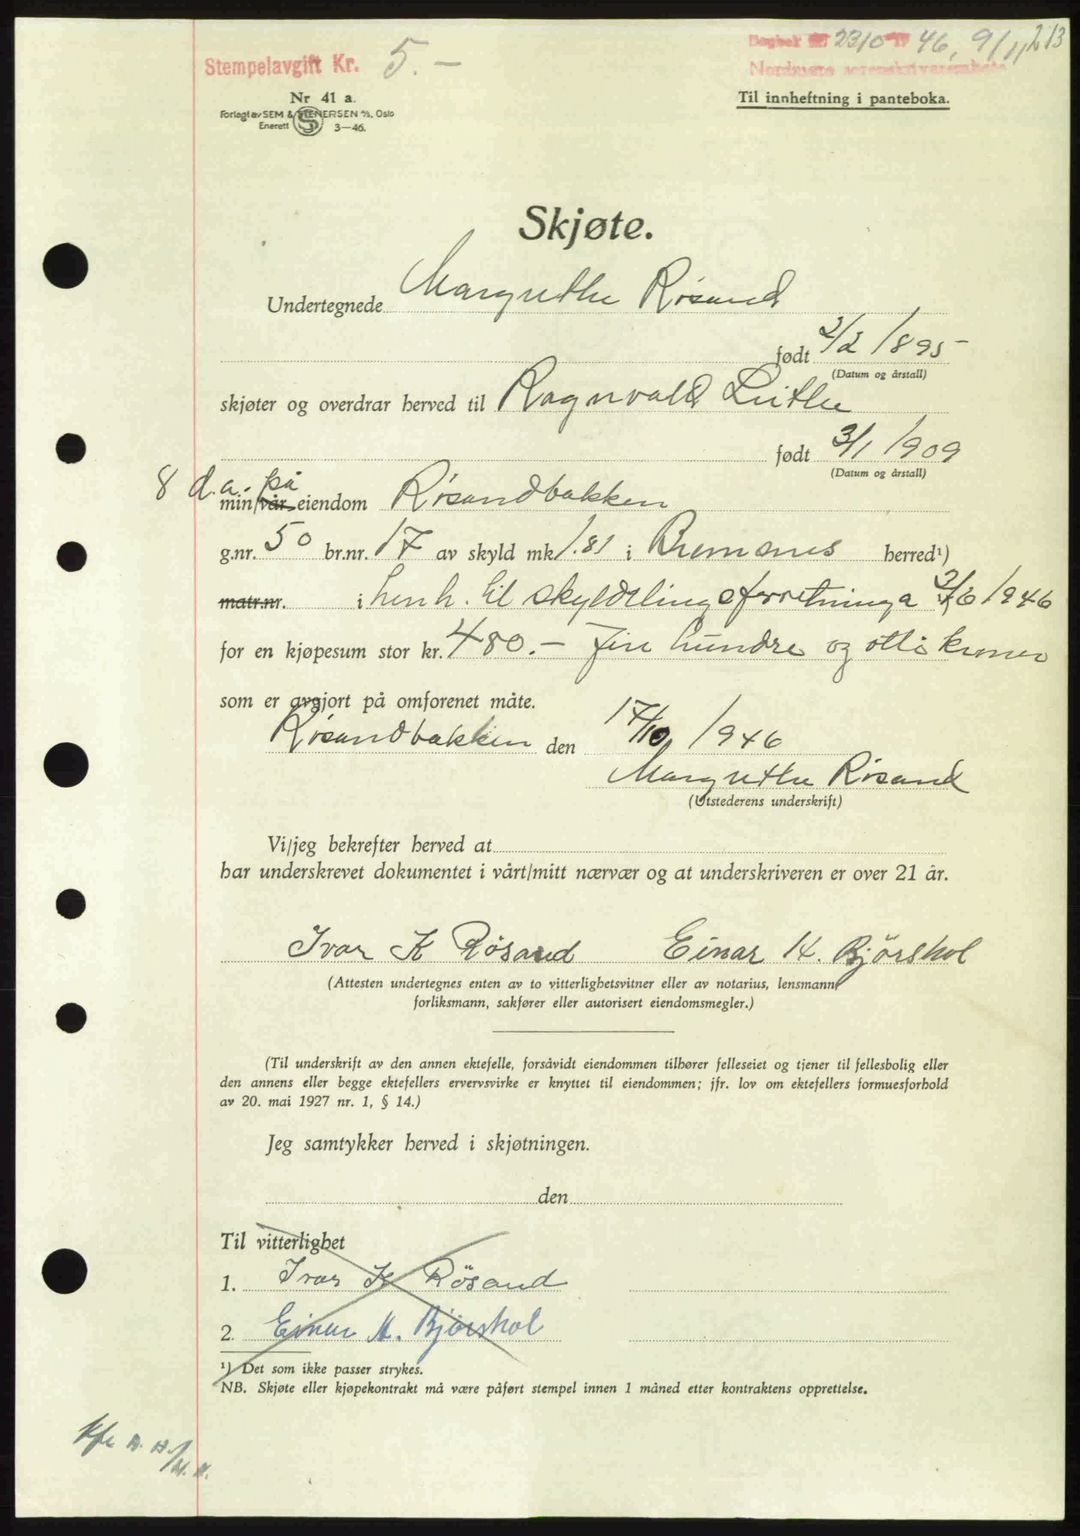 Stempelavgift Kr. 5.—
Dagbok nr. 2310 19 46, 9/11 213
Nordmøre sorenskriverembete
Nr 41 a.
Forlagt av SEM & STENERSEN A/S, Oslo
Enerett 3—46.
Til innheftning i panteboka.
Skjøte.
Undertegnede Margrethe Røsand
født 2/2 1895
(Datum og årstall)
skjøter og overdrar herved til Ragnvald Lithe
født 3/1 1909
(Datum og årstall)
8 d.a. på
min/vår eiendom Røsandbakken
g.nr. 50 br.nr. 17 av skyld mk 1.81 i Bremsnes herred¹)
matr.nr. i henh. til skyldelingsforretning a 3/6 1946
for en kjøpesum stor kr. 480.— Fire hundre og otti kroner
som er avgjort på omforenet måte.
Røsandbakken den 17/10 1946
Margrethe Røsand
(Utstederens underskrift)
Vi/jeg bekrefter herved at
har underskrevet dokumentet i vårt/mitt nærvær og at underskriveren er over 21 år.
Ivar K Røsand Einar H. Bjørshol
(Attesten undertegnes enten av to vitterlighetsvitner eller av notarius, lensmann,
forliksmann, sakfører eller autorisert eiendomsmegler.)
(Til underskrift av den annen ektefelle, forsåvidt eiendommen tilhører felleseiet og tjener til fellesbolig eller
den annens eller begge ektefellers ervervsvirke er knyttet til eiendommen; jfr. lov om ektefellers formuesforhold
av 20. mai 1927 nr. 1, § 14.)
Jeg samtykker herved i skjøtningen.
den
Til vitterlighet
1. Ivar K Røsand
2. Einar H. Bjørshol
¹) Det som ikke passer strykes.
NB. Skjøte eller kjøpekontrakt må være påført stempel innen 1 måned etter kontraktens opprettelse.